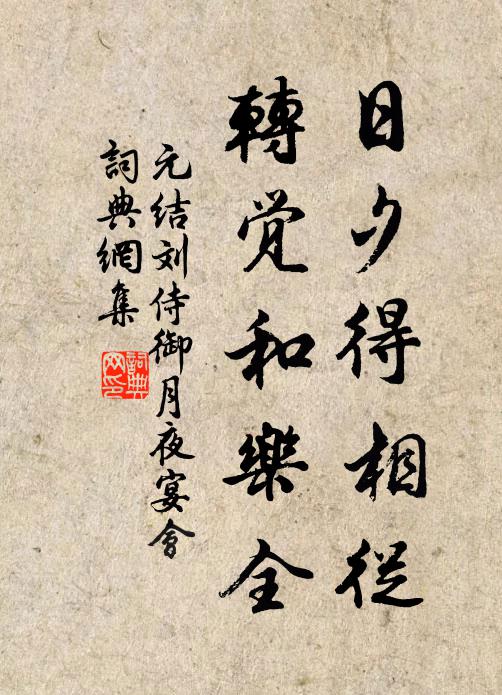 日夕得相從
轉觉和樂全
元结刘侍御月夜宴會
詞典網集
詞典网印